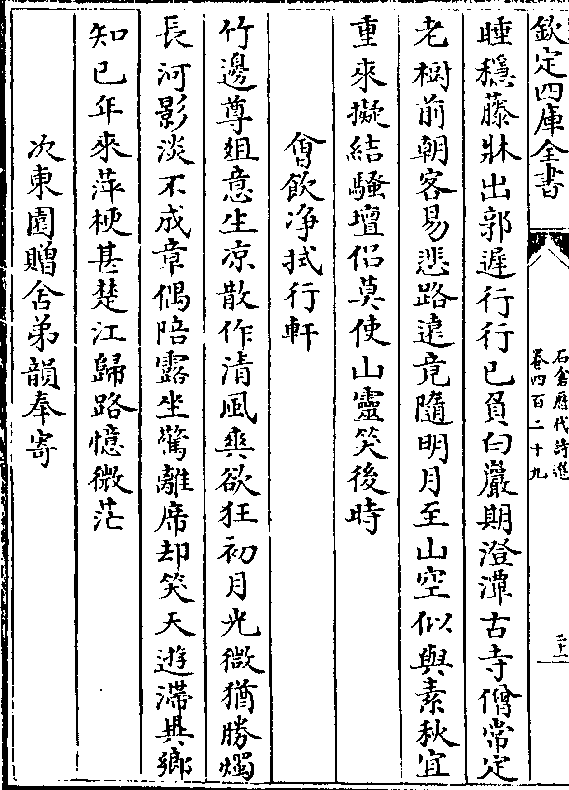 欽定四庫全書
石倉歷代詩選
卷四百二十九
二十一
睡穩藤牀出郭遲行行已負白巖期澄潭古寺僧常定
老樹前朝客易悲路遠竟隨明月至山空似與素秋宜
重來擬結騷壇侶莫使山靈笑後時
會飲净拭行軒
竹邊尊俎意生凉散作清風爽欲狂初月光微猶勝燭
長河影淡不成章偶陪露坐驚離席却笑天遊滯異鄉
知已年來萍梗甚楚江歸路憶微茫
次東園贈舍弟韻奉寄